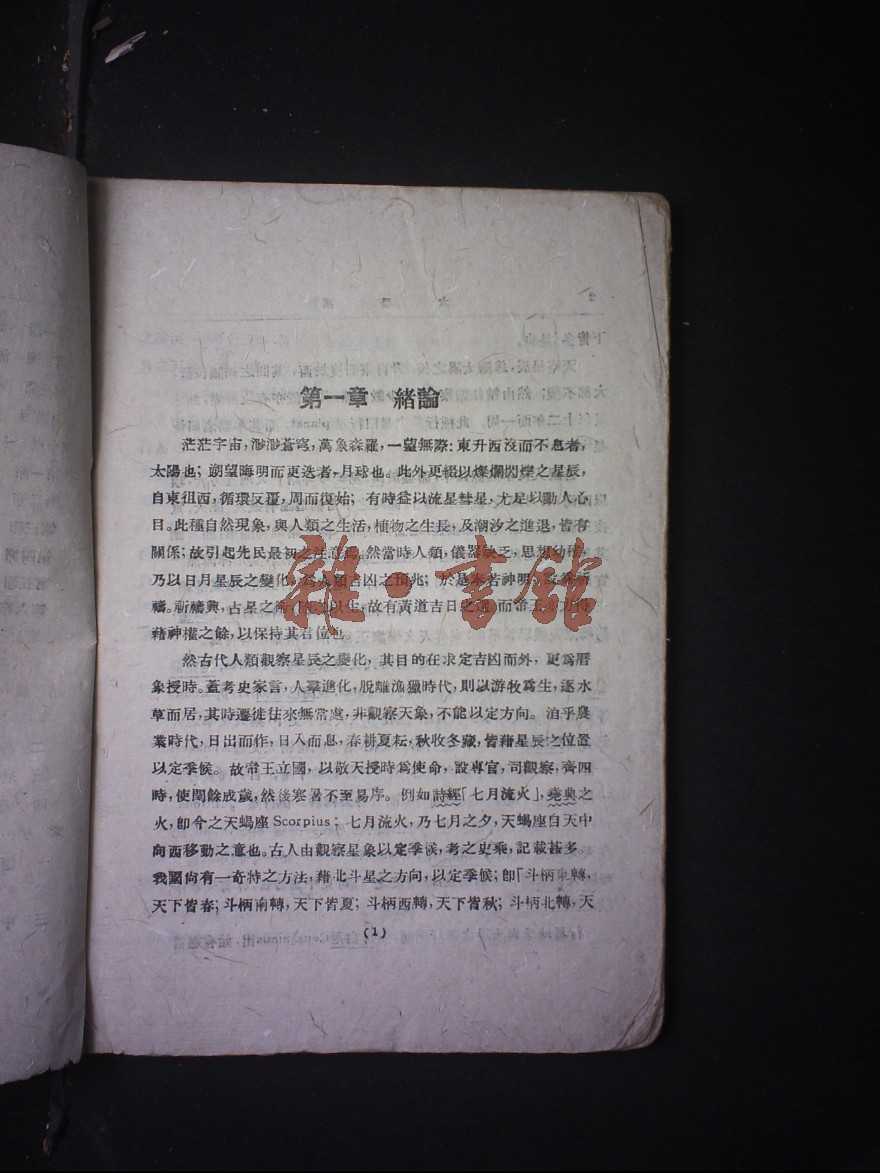 第一章 緒論
茫茫宇宙，渺渺蒼穹，萬象森羅，一望無際：東升西沒而不息者，
太陽也；朔望晦明而更迭者，月球也。此外更綴以燦爛閃爍之星辰，
自東徂西，循環反覆，周而復始；有時益以流星彗星，尤足以動人心
目。此種自然現象，與人類之生活，植物之生長，及潮汐之進退，皆有
關係；故引起先民最初之注意焉。然當時人類，儀器缺乏，思想幼稚，
乃以日月星辰之變化，爲人類吉凶之預兆；於是奉若神明，
禱。祈禱興，占星之術以生，故有黃道吉日之選，而帝王
藉神權之餘，以保持其君位也
然古代人類觀察星辰之變化，其目的在求定吉凶而外，更爲曆
象授時。蓋考史家言，人羣進化，脫離漁獵時代，則以游牧爲生，逐水
草而居，其時遷徙往來無常處，非觀察天象，不能以定方向。洎乎農
業時代，日出而作，日入而息，春耕夏耘，秋收冬藏，皆藉星辰之位置
以定季候。故帝王立國，以敬天授時爲使命，設專官，司觀察，齊四
時，使閏餘成歲，然後寒暑不至易序。例如詩經「七月流火」，堯典之
火，卽今之天蝎座Scorpius；七月流火，乃七月之夕，天蝎座自天中
向西移動之意也。古人由觀察星象以定季候，考之史乘，記載甚多。
我國尙有一奇特之方法，藉北斗星之方向，以定季候；卽「斗柄東轉，
天下皆春；斗柄南轉，天下皆夏；斗柄西轉，天下皆秋；斗柄北轉，天
(1)
雜·書館